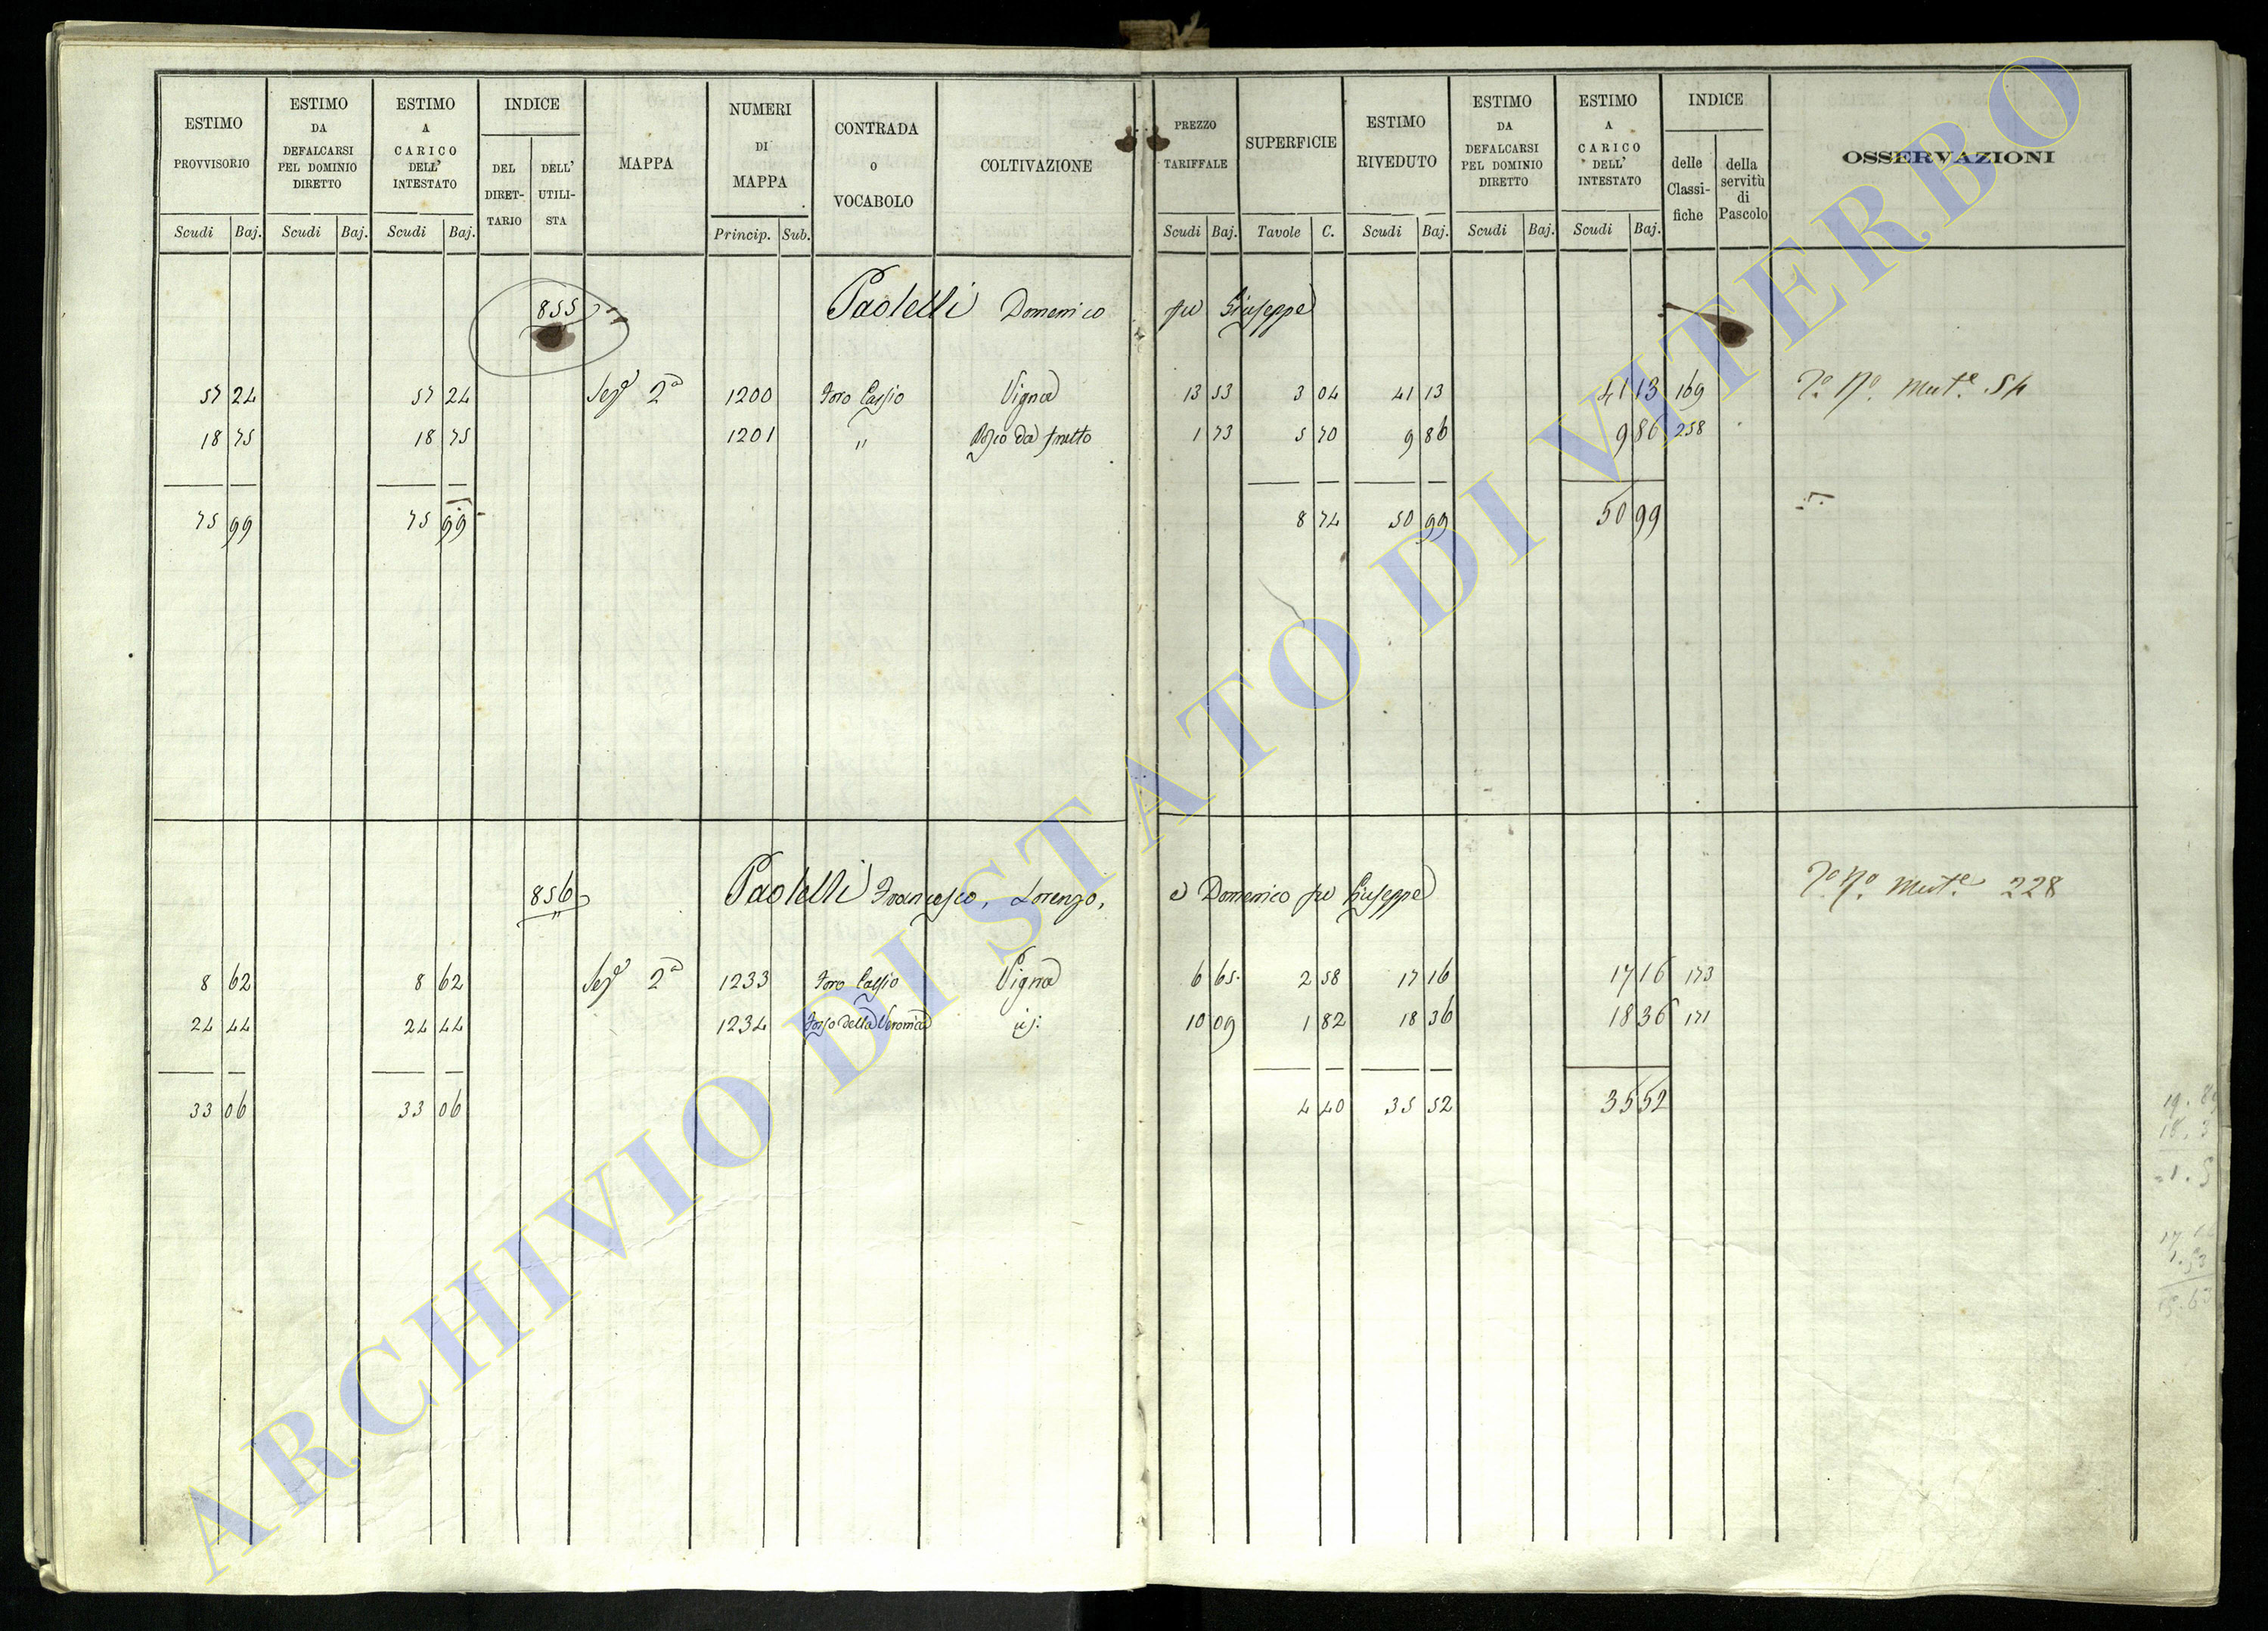 ESTIMO PROVVISORIO
Scudi Baj.
ESTIMO DA DEFALCARSI PEL DOMINIO DIRETTO
Scudi Baj.
ESTIMO A CARICO DELL' INTESTATO
Scudi Baj.
INDICE
DEL DIRET-TARIO
DELL' UTILI-STA
MAPPA
NUMERI DI MAPPA
Princip. Sub.
CONTRADA O VOCABOLO
COLTIVAZIONE
PREZZO TARIFFALE
Scudi Baj.
SUPERFICIE
Tavole C.
ESTIMO RIVEDUTO
Scudi Baj.
ESTIMO DA DEFALCARSI PEL DOMINIO DIRETTO
Scudi Baj.
ESTIMO A CARICO DELL' INTESTATO
Scudi Baj.
INDICE
delle Classi-fiche
della servitù di Pascolo
OSSERVAZIONI
855 Paolelli Domenico fu Giuseppe
57 24 57 24 Sez.e 2a 1200 Foro Cassio Vigna 13 53 3 04 41 13 41 13 169
18 75 18 75 1201 " da frutto 1 73 5 70 9 86 9 86 258
75 99 75 99 8 74 50 99 50 99
856 Paolelli Francesco, Lorenzo, e Domenico fu Giuseppe 228
8 62 8 62 Sez.e 2a 1233 Foro Cassio Vigna 6 65 2 58 17 16 17 16 173
24 44 24 44 1234 Fosso della Veronica id. 10 09 1 82 18 36 18 36 171
33 06 33 06 4 40 35 52 35 52
ARCHIVIO DI STATO DI VITERBO